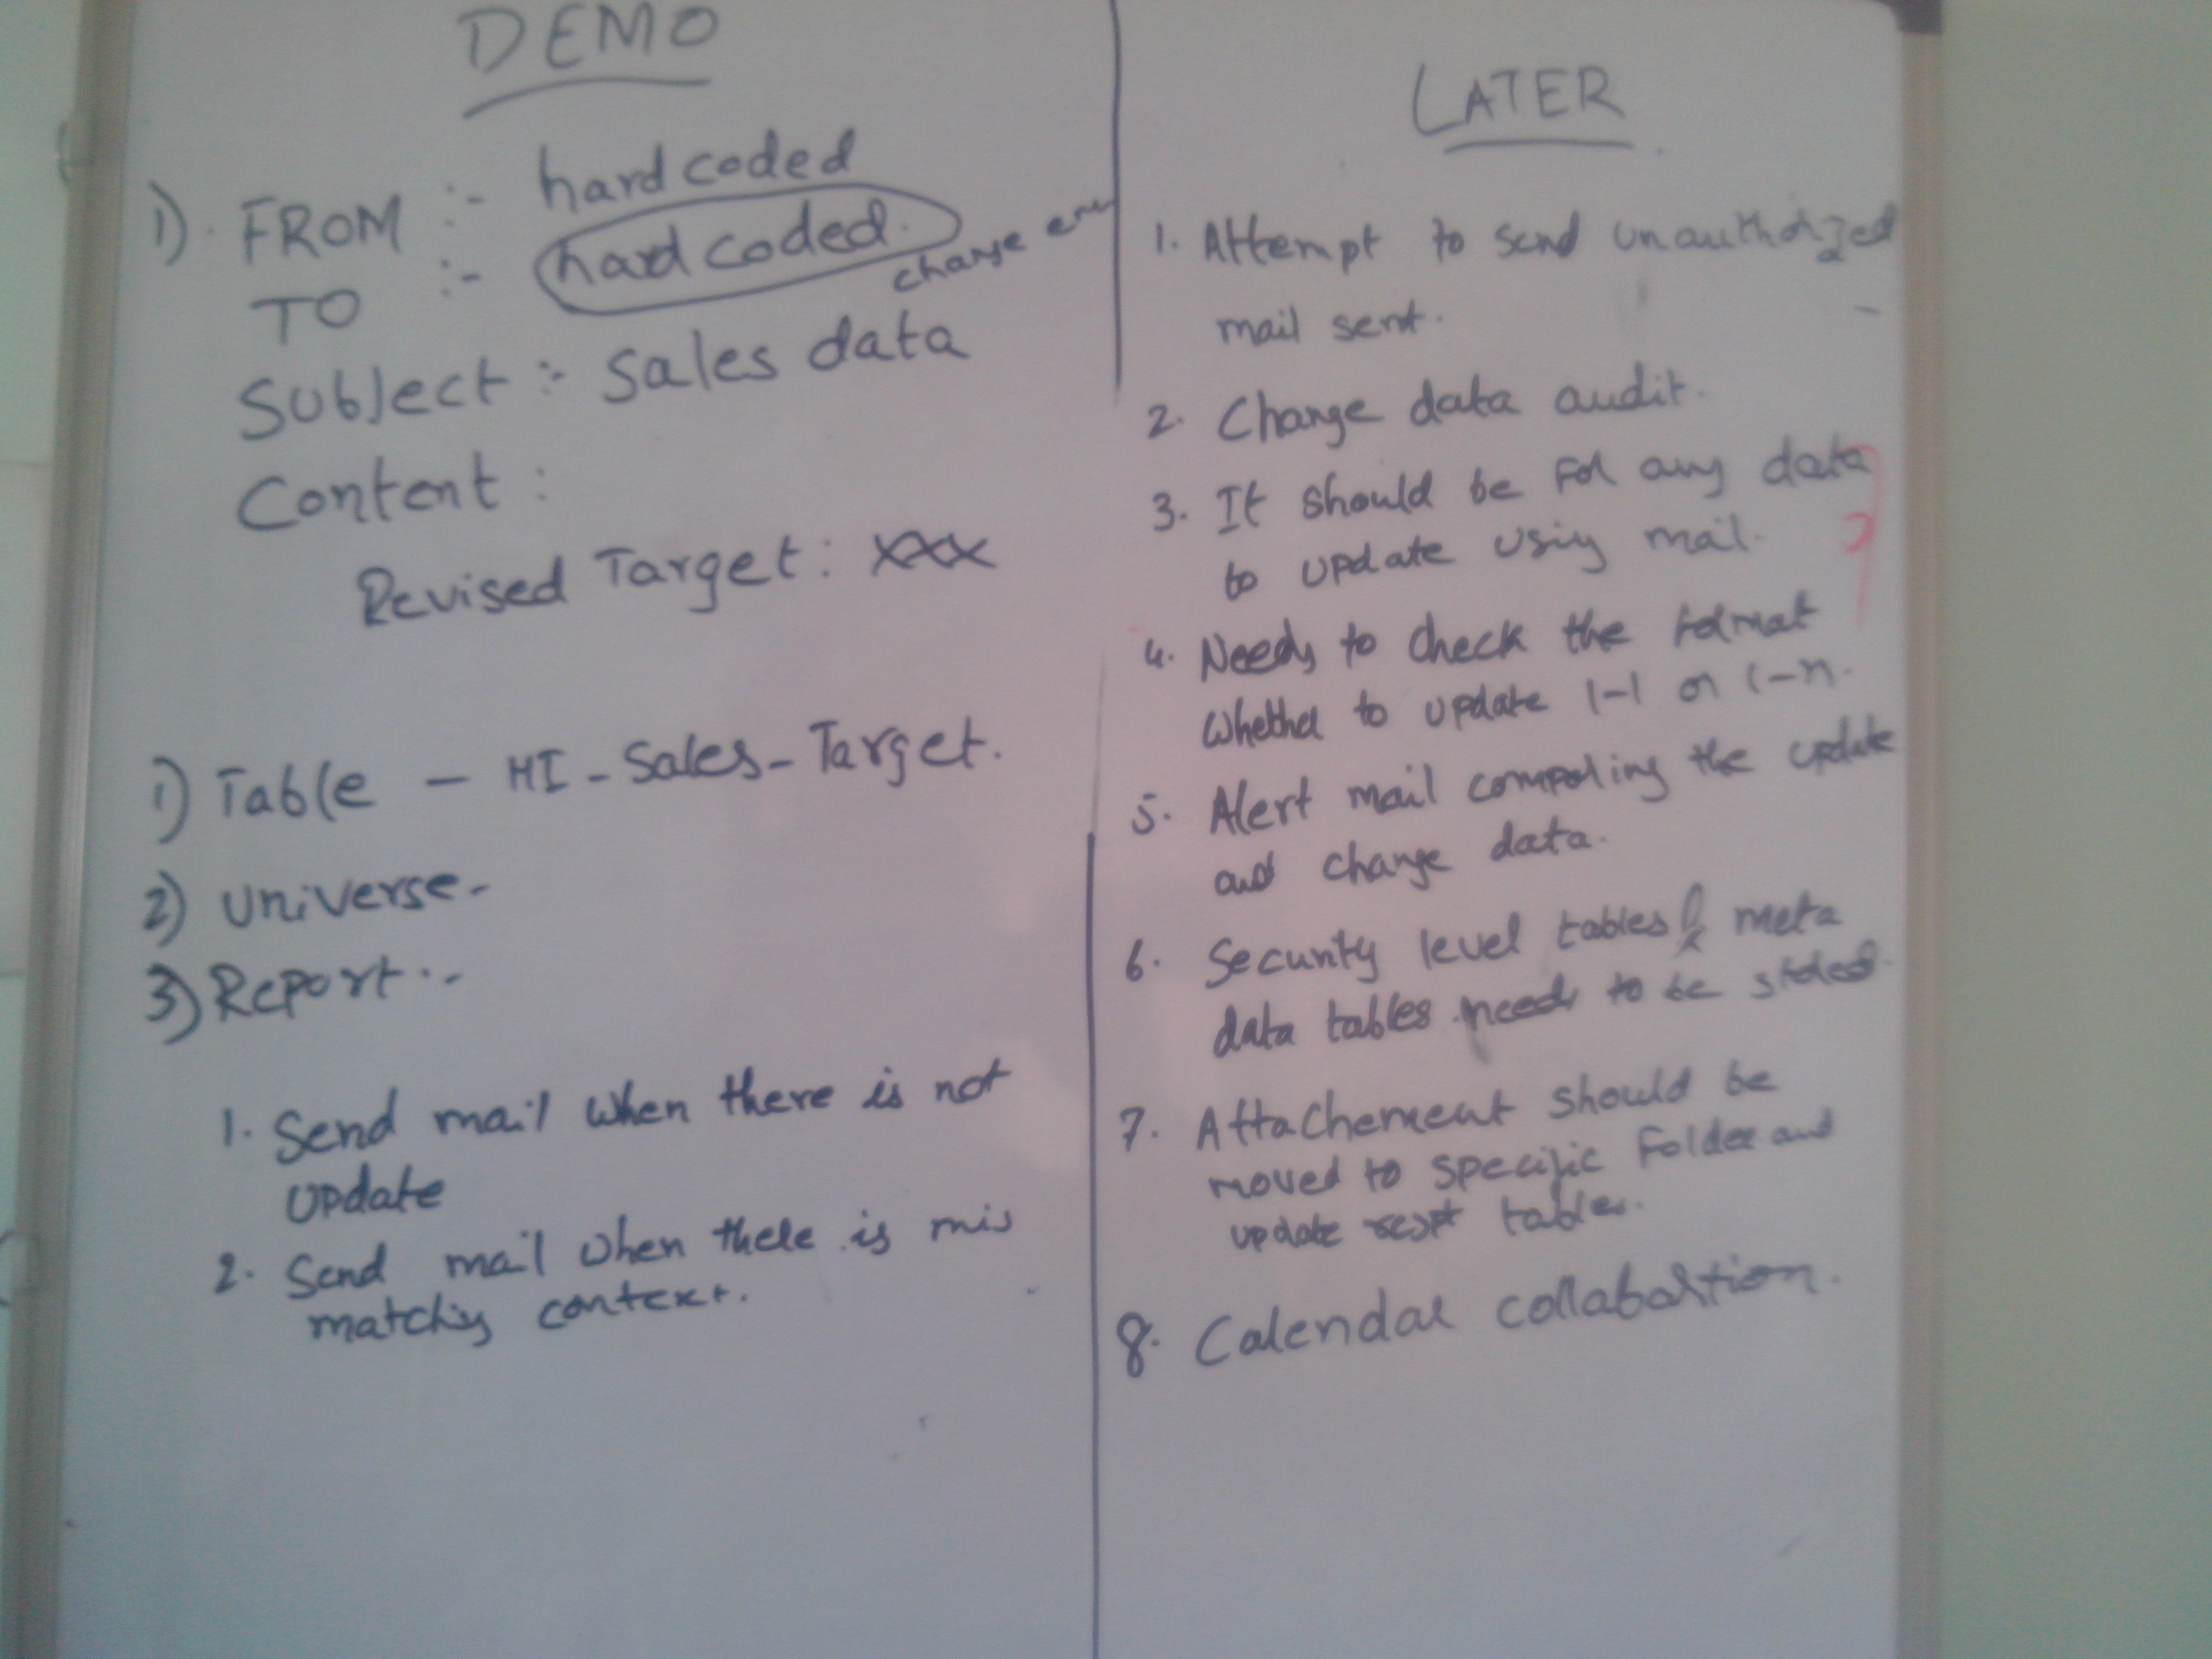 DEMO
1). FROM :- hard coded
TO :- hard coded.
change
Subject :- Sales data
Content :
Revised Target : XXX
1) Table - HI-Sales-Target.
2) Universe-
3) Report :-
1. Send mail when there is not
update
2. Send mail when there is mis
matching context.
LATER
1. Attempt to send unauthorized
mail sent.
2. Change data audit.
3. It should be for any data
to update using mail.
4. Needs to check the format
whether to update 1-1 or 1-n.
5. Alert mail the update
and change data.
6. Security level tables & meta
data tables needs to be stored.
7. Attachement should be
moved to specific Folder and
update respt tables.
8. Calendar collabortion.